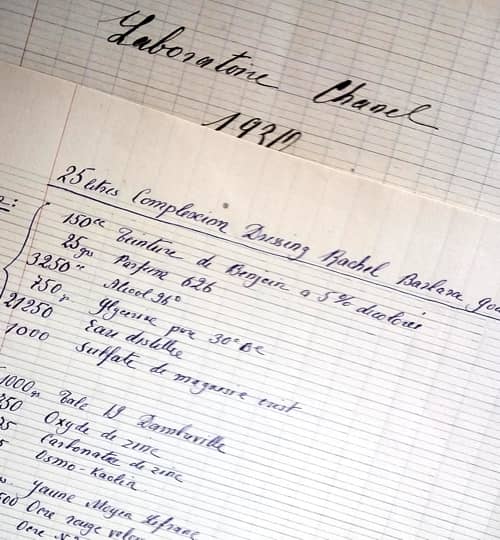 Laboratoire Chanel
1930
25 litres Complexion Dressing Rachel Barbara
150cc Teinture de Benjoin a 5% dicolorée
25grs Parfum 626
3250 " Alcool 96°
750 " Glycerine pure 30° Be
21250 Eau distillée
1000 Sulfate de magnesie crist
1000 Talc 19 Dambreville
Oxyde de zinc
Carbonate de zinc
Osmo-Kaolin
Jaune Moyen Lefranc
Ocre rouge
Ocre